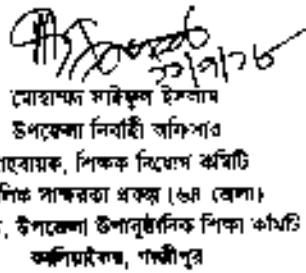 ২২/৭/১৮
মোহাম্মদ সাইফুল ইসলাম
উপজেলা নির্বাহী অফিসার
হবায়ক, শিক্ষক নিয়োগ কমিটি
লিক সাক্ষরতা প্রকল্প (৬৪ জেলা)
, উপজেলা উপানুষ্ঠানিক শিক্ষা কমিটি
কালিয়াকৈর, গাজীপুর